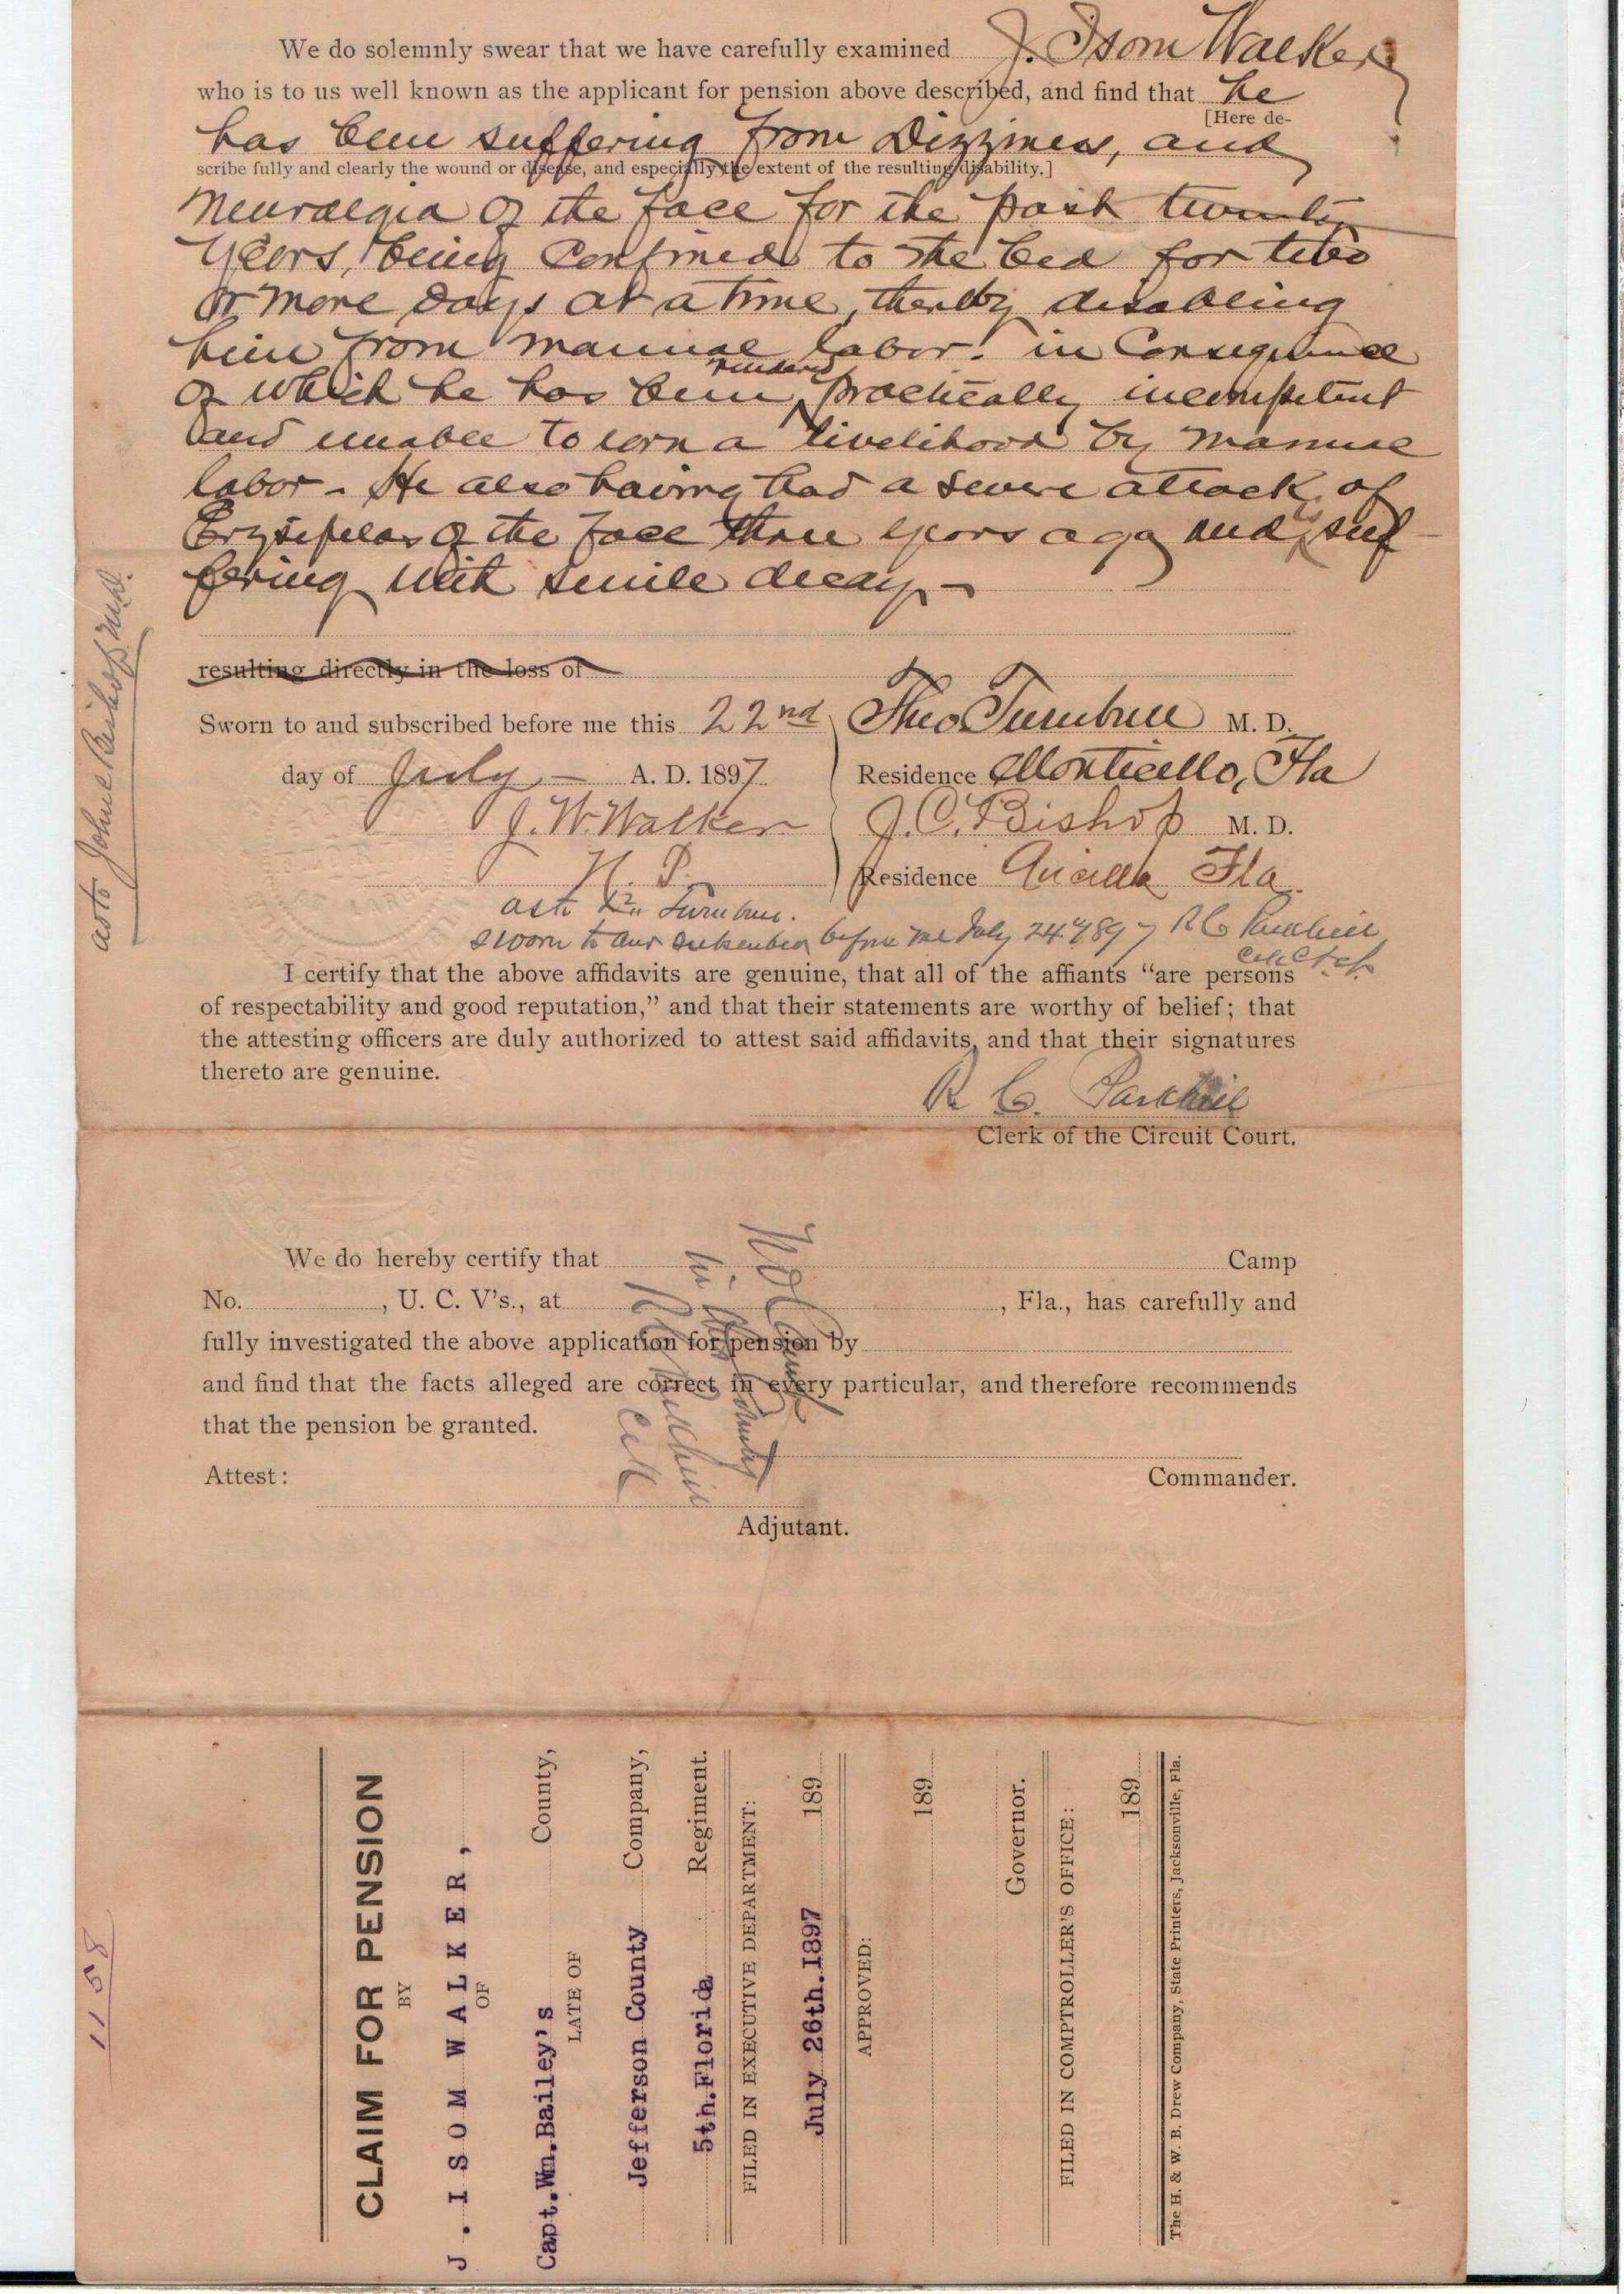 We do solemnly swear that we have carefully examined J. Isom Walker
who is to us well known as the applicant for pension above described, and find that he
[Here de-
has been suffering from Dizziness, and
scribe fully and clearly the wound or disease, and especially the extent of the resulting disability.]
Neuralgia of the face for the past twenty
years, being confined to the bed for two
or more days at a time, thereby disabling
him from manual labor. in consequence
of which he has been rendered practically incompetent
and unable to earn a livelihood by manual
labor - He also having had a severe attack of
Erysipelas of the face three years ago and is suf-
fering with senile decay -
resulting directly in the loss of
Sworn to and subscribed before me this 22nd
day of July - A. D. 1897
J. W. Walker
N. P.
as to Dr. Turnbull.
Theo. Turnbull M. D.
Residence Monticello, Fla
J. C. Bishop M. D.
Residence Aucilla Fla.
Sworn to and subscribed before me July 24 1897 R C Parkhill
Clk Ct Ct
as to John C Bishop M.D.
I certify that the above affidavits are genuine, that all of the affiants “are persons
of respectability and good reputation,” and that their statements are worthy of belief; that
the attesting officers are duly authorized to attest said affidavits, and that their signatures
thereto are genuine.
R. C. Parkhill
Clerk of the Circuit Court.
We do hereby certify that Camp
No. , U. C. V's., at , Fla., has carefully and
fully investigated the above application for pension by
and find that the facts alleged are correct in every particular, and therefore recommends
that the pension be granted.
Commander.
Attest:
Adjutant.
No Camp
in this County
R C Parkhill
Clk
1158
CLAIM FOR PENSION
BY
J. ISOM WALKER,
OF
Capt.Wm.Bailey's County,
LATE OF
Jefferson County Company,
5th.Florida Regiment.
FILED IN EXECUTIVE DEPARTMENT:
July 26th.1897 189
APPROVED:
189
Governor.
FILED IN COMPTROLLER'S OFFICE:
189
The H. & W. B. Drew Company, State Printers, Jacksonville, Fla.